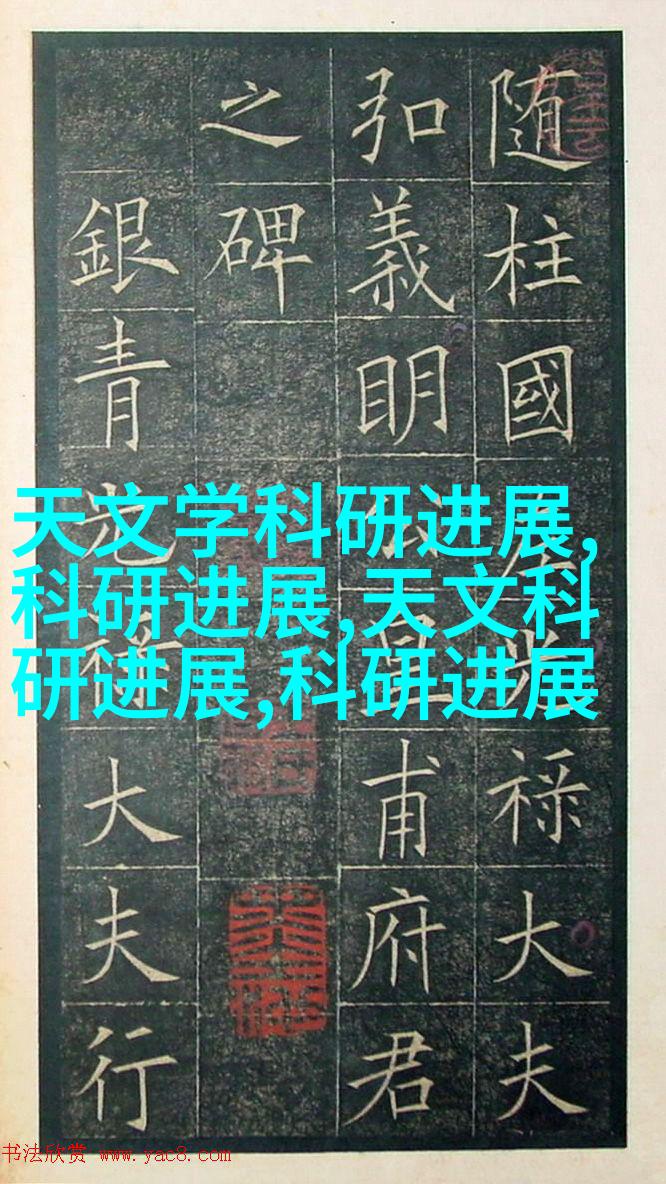 随柱國左光祿大夫
弘義明公皇甫府君
之碑
銀青光祿大夫行
天文学科研进展,
科研进展,天文科
研进展,科研进展
书法欣赏 www.yac8.com